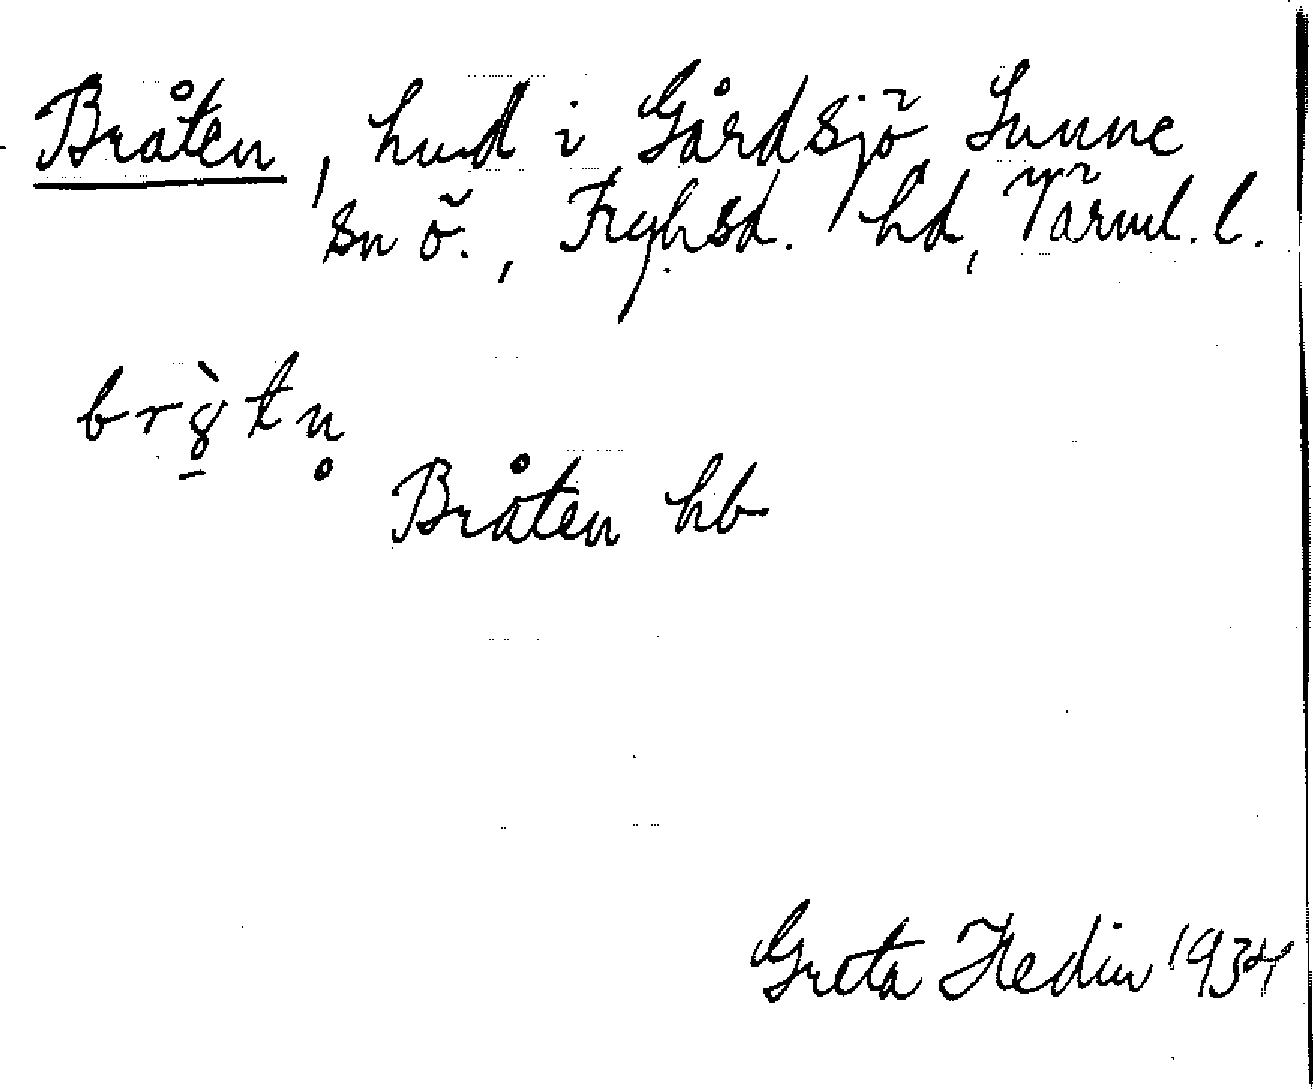 Bråten, hmd i Gårdsjö, Sunne
sn ö., Fryksd. hd, Värml. l.
brò᷸tn̥
Bråten hb
Greta Hedin 1934